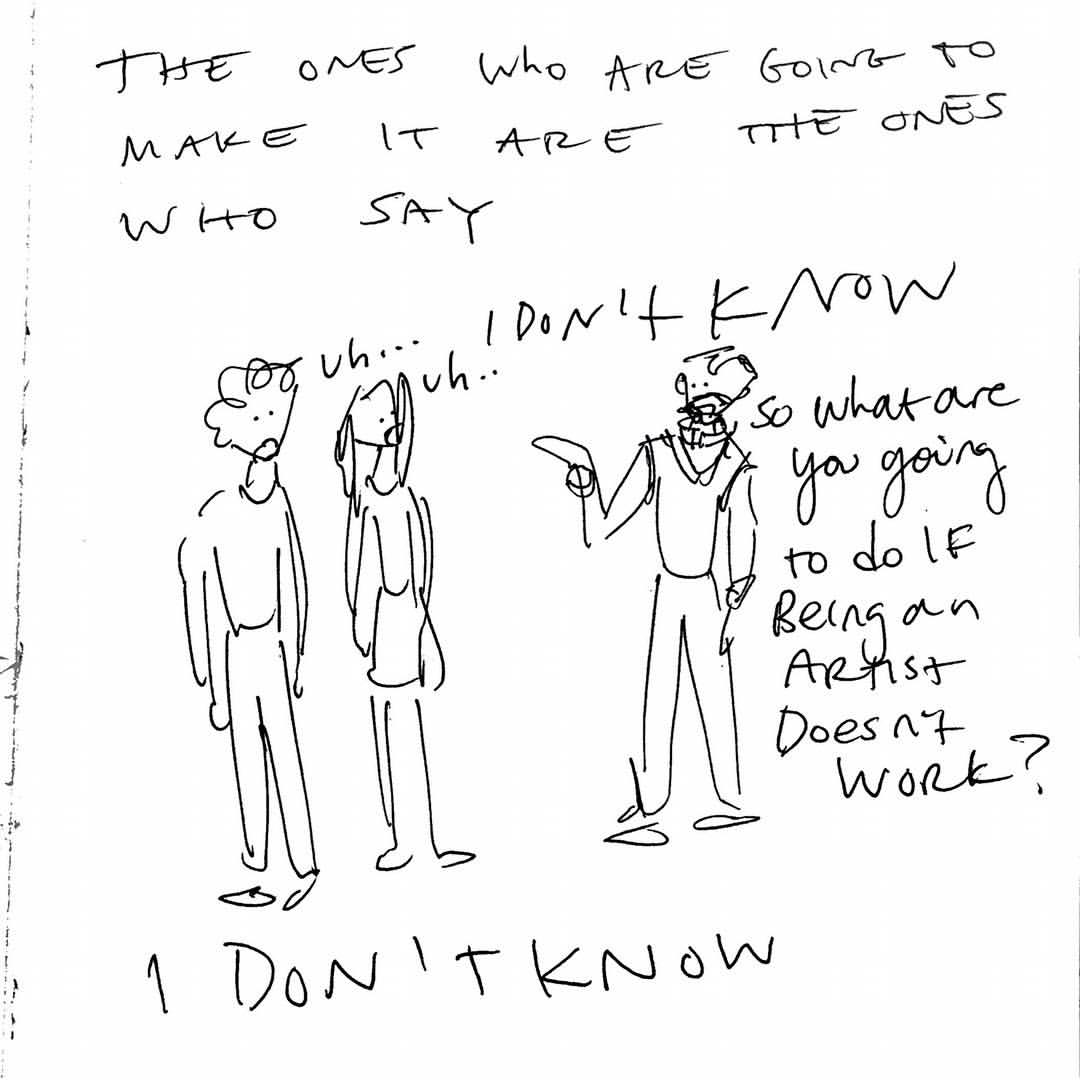 THE ONES WHO ARE GOING TO
MAKE IT ARE THE ONES
WHO SAY
I DON'T KNOW
uh...
uh..
So what are
you going
to do IF
Being an
ARtist
Doesn't
WORK?
I DON'T KNOW